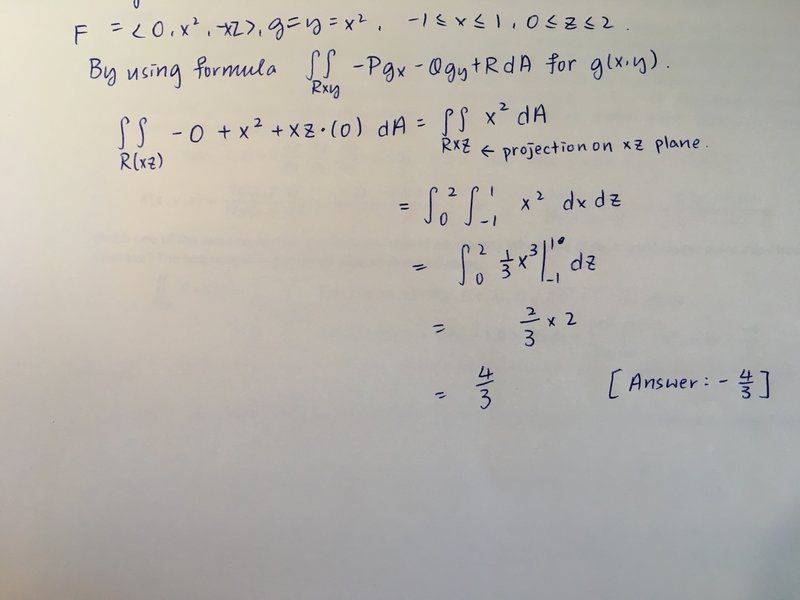 F = <0, x², -xz>, g = y = x², -1 ≤ x ≤ 1, 0 ≤ z ≤ 2.
By using formula ∬_{Rxy} -Pgx - Qgy + R dA for g(x,y).
∬_{R(xz)} -0 + x² + xz·(0) dA = ∬_{Rxz} x² dA
← projection on xz plane.
= ∫₀² ∫₋₁¹ x² dx dz
= ∫₀² 1/3 x³ |₋₁¹ dz
= 2/3 × 2
= 4/3 [Answer: - 4/3]